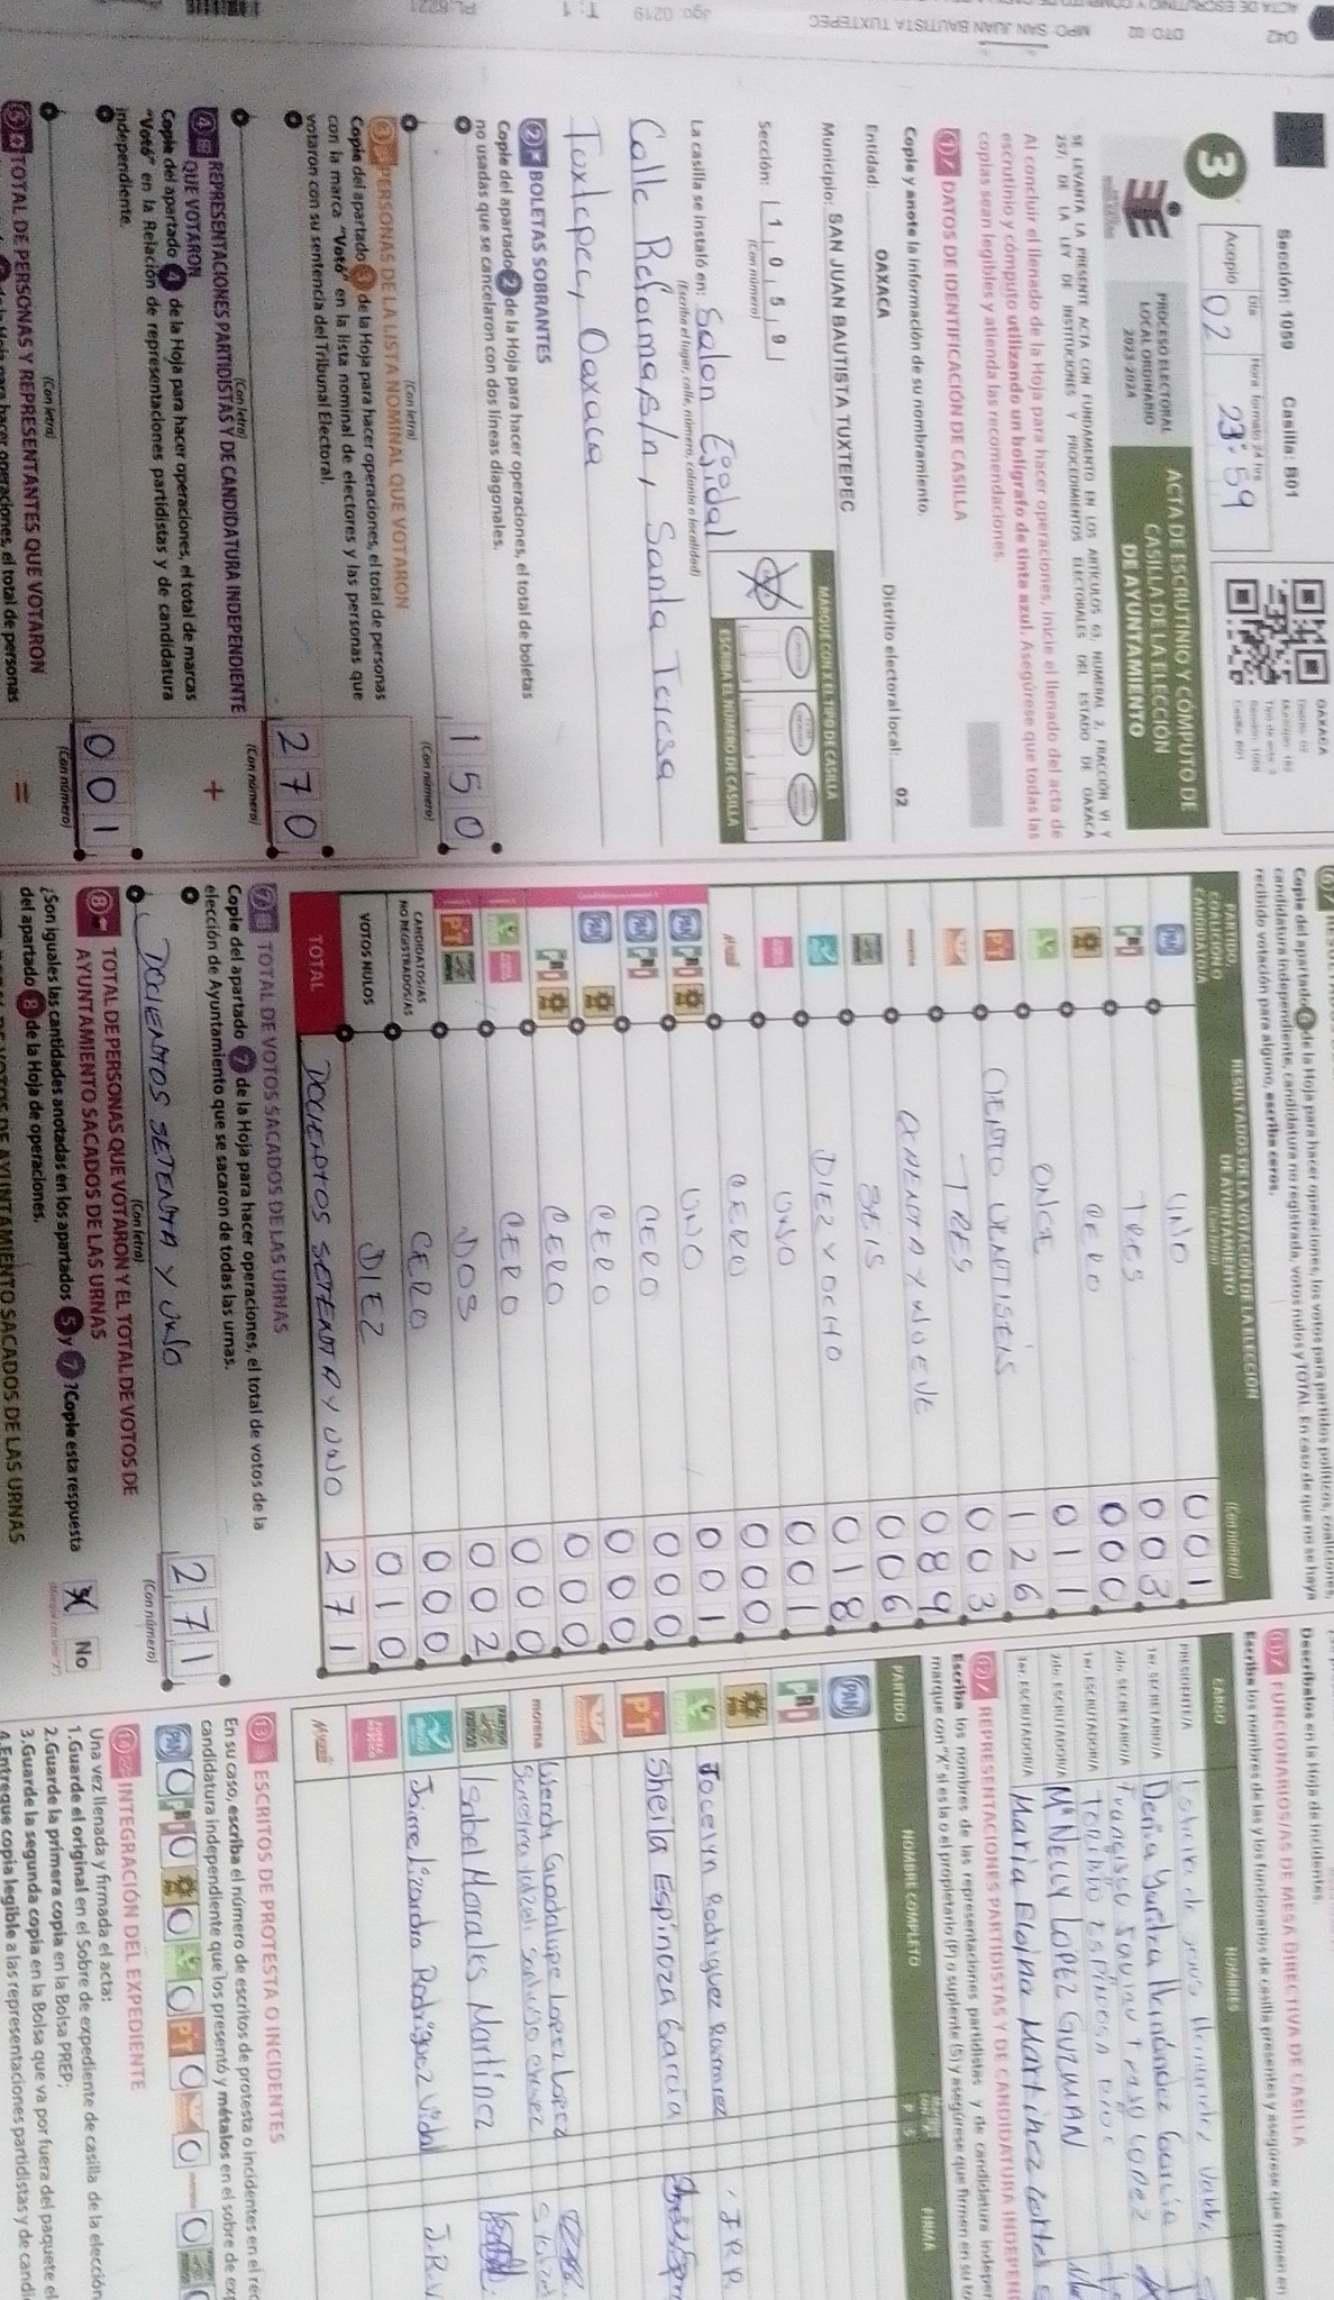 Sección: 1059 Casilla: B01
OAXACA
3
Acopio
Día
Hora formato 24 hrs
02
23:59
PROCESO ELECTORAL
LOCAL ORDINARIO
2023-2024
ACTA DE ESCRUTINIO Y CÓMPUTO DE
CASILLA DE LA ELECCIÓN
DE AYUNTAMIENTO
SE LEVANTA LA PRESENTE ACTA CON FUNDAMENTO EN LOS ARTÍCULOS 63, NUMERAL 2, FRACCIÓN VI Y
257; DE LA LEY DE INSTITUCIONES Y PROCEDIMIENTOS ELECTORALES DEL ESTADO DE OAXACA
Al concluir el llenado de la Hoja para hacer operaciones, inicie el llenado del acta de
escrutinio y cómputo utilizando un bolígrafo de tinta azul. Asegúrese que todas las
copias sean legibles y atienda las recomendaciones.
1 DATOS DE IDENTIFICACIÓN DE CASILLA
Copie y anote la información de su nombramiento.
Entidad: OAXACA Distrito electoral local: 02
Municipio: SAN JUAN BAUTISTA TUXTEPEC
Sección: 1059
(Con número)
MARQUE CON X EL TIPO DE CASILLA
ESCRIBA EL NÚMERO DE CASILLA
La casilla se instaló en: Salon Ejidal
(Escriba el lugar, calle, número, colonia o localidad)
Calle Reforma s/n, Santa Teresa
Tuxtepec, Oaxaca
2 BOLETAS SOBRANTES
Copie del apartado 2 de la Hoja para hacer operaciones, el total de boletas
no usadas que se cancelaron con dos líneas diagonales.
150
(Con letra) (Con número)
3 PERSONAS DE LA LISTA NOMINAL QUE VOTARON
Copie del apartado 3 de la Hoja para hacer operaciones, el total de personas
con la marca "Votó" en la lista nominal de electores y las personas que
votaron con su sentencia del Tribunal Electoral.
270
(Con letra) (Con número)
4 REPRESENTACIONES PARTIDISTAS Y DE CANDIDATURA INDEPENDIENTE
QUE VOTARON
+
Copie del apartado 4 de la Hoja para hacer operaciones, el total de marcas
"Votó" en la Relación de representaciones partidistas y de candidatura
independiente.
001
(Con letra) (Con número)
5 TOTAL DE PERSONAS Y REPRESENTANTES QUE VOTARON
=
Copie del apartado 6 de la Hoja para hacer operaciones, los votos para partidos políticos, coaliciones,
candidatura independiente, candidatura no registrada, votos nulos y TOTAL. En caso de que no se haya
recibido votación para alguno, escriba ceros.
PARTIDO,
COALICIÓN O
CANDIDATO/A
RESULTADOS DE LA VOTACIÓN DE LA ELECCIÓN
DE AYUNTAMIENTO
(Con letra)
(Con número)
PAN UNO 001
PRI TRES 003
PRD CERO 000
ONCE 011
PT CIENTO VENTISEIS 126
TRES 003
morena OCHENTA Y NUEVE 089
SEIS 006
DIEZ Y OCHO 018
UNO 001
CERO 000
PAN PRI PRD UNO 001
PAN PRI CERO 000
PAN PRD CERO 000
PRI PRD CERO 000
CERO 000
PT DOS 002
CANDIDATOS/AS
NO REGISTRADOS/AS CERO 000
VOTOS NULOS DIEZ 010
TOTAL DOCIENTOS SETENTA Y UNO 271
7 TOTAL DE VOTOS SACADOS DE LAS URNAS
Copie del apartado 7 de la Hoja para hacer operaciones, el total de votos de la
elección de Ayuntamiento que se sacaron de todas las urnas.
DOCIENTOS SETENTA Y UNO 271
(Con letra) (Con número)
8 TOTAL DE PERSONAS QUE VOTARON Y EL TOTAL DE VOTOS DE
AYUNTAMIENTO SACADOS DE LAS URNAS
¿Son iguales las cantidades anotadas en los apartados 5 y 7? Copie esta respuesta
del apartado 8 de la Hoja de operaciones.
X No
Descríbalos en la Hoja de incidentes.
FUNCIONARIOS/AS DE MESA DIRECTIVA DE CASILLA
Escriba los nombres de las y los funcionarios de casilla presentes y asegúrese que firmen en
CARGO NOMBRES
PRESIDENTE/A
1er. SECRETARIO/A Denia Yaritza Hernández García
2do. SECRETARIO/A
1er. ESCRUTADOR/A
2do. ESCRUTADOR/A Ma NELLY LOPEZ GUZMAN
3er. ESCRUTADOR/A Maria Eloina Martinez Cortes
12 REPRESENTACIONES PARTIDISTAS Y DE CANDIDATURA INDEPEN
Escriba los nombres de las representaciones partidistas y de candidatura indepen
marque con "X" si es la o el propietario (P) o suplente (S) y asegúrese que firmen en su to
PARTIDO NOMBRE COMPLETO P S FIRMA
PAN
PRI
PRD
Jocelyn Rodriguez Ramirez J R R
PT Sheila Espinoza Garcia
morena Wendy Guadalupe Lopez Lopez
Isabel Morales Martínez
Jaime Lizandro Rodríguez Vidal J.R.V
13 ESCRITOS DE PROTESTA O INCIDENTES
En su caso, escriba el número de escritos de protesta o incidentes en el rec
candidatura independiente que los presentó y métalos en el sobre de exp
PAN 0 PRI 0 PRD 0 0 PT 0 0 0
14 INTEGRACIÓN DEL EXPEDIENTE
Una vez llenada y firmada el acta:
1.Guarde el original en el Sobre de expediente de casilla de la elección
2.Guarde la primera copia en la Bolsa PREP;
3.Guarde la segunda copia en la Bolsa que va por fuera del paquete el
4.Entregue copia legible a las representaciones partidistas y de candi
042 DTO: 02 MPO: SAN JUAN BAUTISTA TUXTEPEC